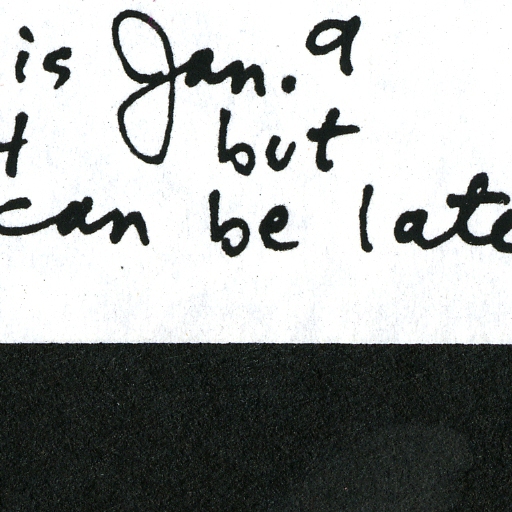 is Jan. 9
but
can be late